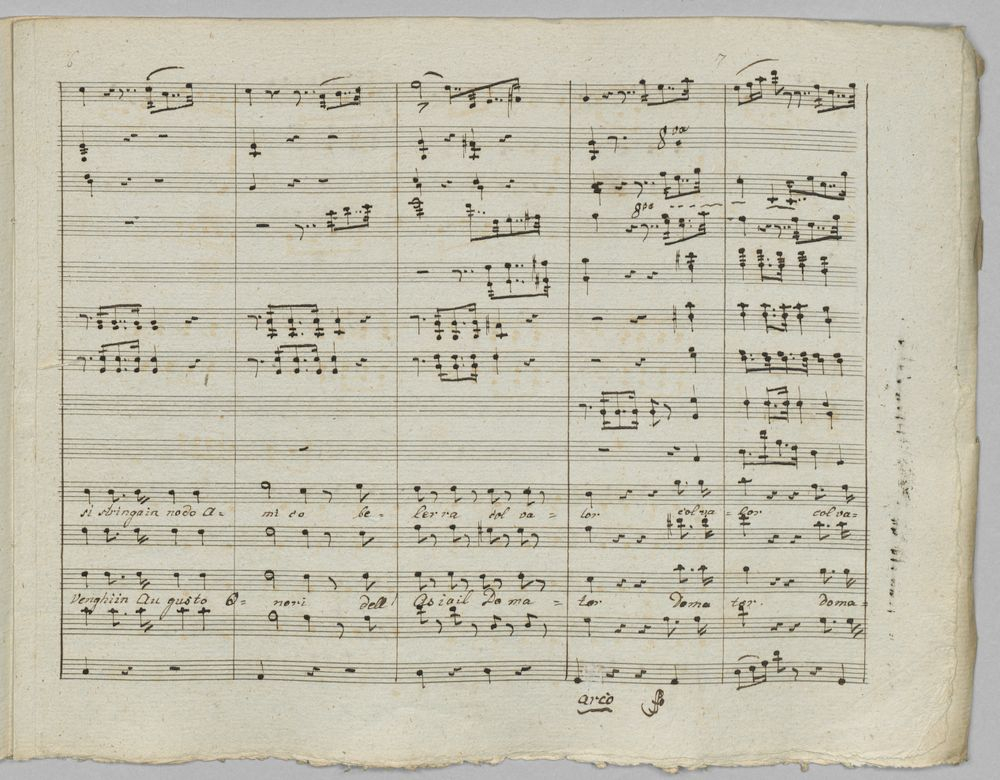 6
7
8va
8va
si stringa in nodo a= mi co be= ler ra col va= lor col va= lor col va=
Venghi in Au gusto O= nori dell' Asia il Do ma = tor Doma tor. Doma=
arco